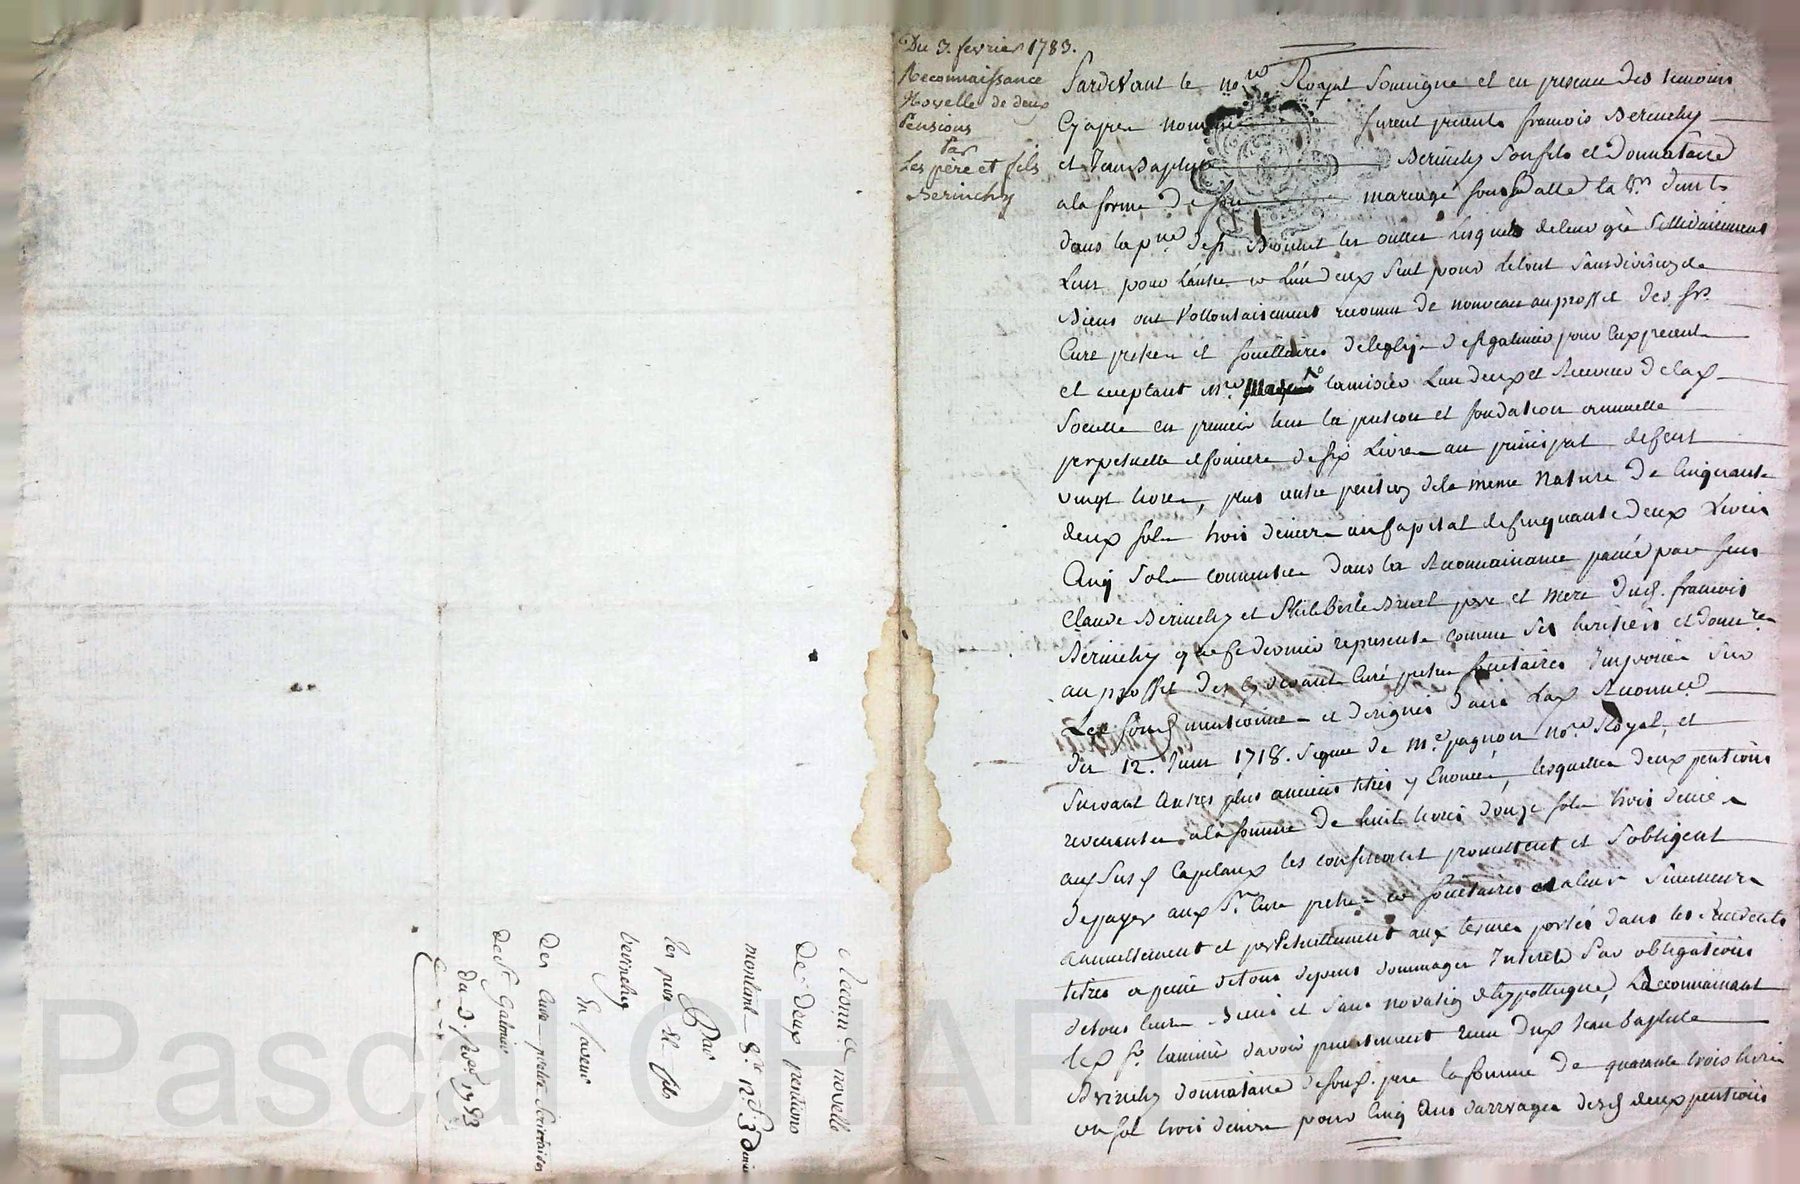 Du 3. fevrier 1783.
Reconnaissance
Novelle de deux
Pensions
Par
Les père et fils
Berinchy
Pardevant le no.re Royal Soussigne et en presence des temoins
Cy apres nommés furent presents francois Berinchy
et Jean Baptiste Berinchy Son fils et Donnataire
a la forme de son mariage
dans la p.sse de Bonnet les ouilles lesquels de leur gré Sollidairement
L'un pour l'autre et L'un deux Seul pour Letout Sans division de
Biens ont Vollontairement reconnu de nouveau au proffit des srs.
Curé prestres et societtaires de leglise de st galmier pour Eux present
et acceptant m.re camisier L'un deux et Receveur de lad.
Societté en premier lieu la pention et fondation annuelle
perpetuelle et fonciere de six Livres au principal de Cent
vingt livres, plus autre pention de la meme Nature de Cinquante
deux sols trois deniers au Capital de Cinquante deux Livres
Cinq Sols contenties dans la Reconnaissance passée par feus
Claude Berinchy et Philiberte Bruel pere et mere dud. francois
Berinchy que ce dernier represente comme Ses heritiers et donn.re
au proffit des cy devant Curé prestres societaires Imposées Sur
Les fonds mentionnés et designés dans Lad. Reconnce
du 12. Juin 1718. Signée de m.e pagnon no.re Royal, et
Suivant Autres plus anciens titres y Enoncés, lesquelles deux pentions
revenantes a la somme de huit livres douze sols trois deniers
aux Susd. Capitaux les confitents promettent et s'obligent
de payer aux Srs Curé prestres et societaires et a leurs Successeurs
annuellement et perpetuellement aux termes portés dans les Precedents
titres a peine de tous depens dommages Interets Par obligations
de tous leurs Biens et Sans novation d'hyppotheque, Reconnaissant
led. sr. camisier davoir presentement recu dud. Jean baptiste
Berinchy donnataire de sond. pere la somme de quarante trois livres
un sol trois deniers pour Cinq Ans darrerages desd. deux pentions
Reconn.ce novelle
de deux pentions
montant 8.# 12.s 3. deniers
Par
les pere et fils
berinchy
En faveur
Des Curé prestres Societaires
de S.t Galmier
du 3. fevr. 1783